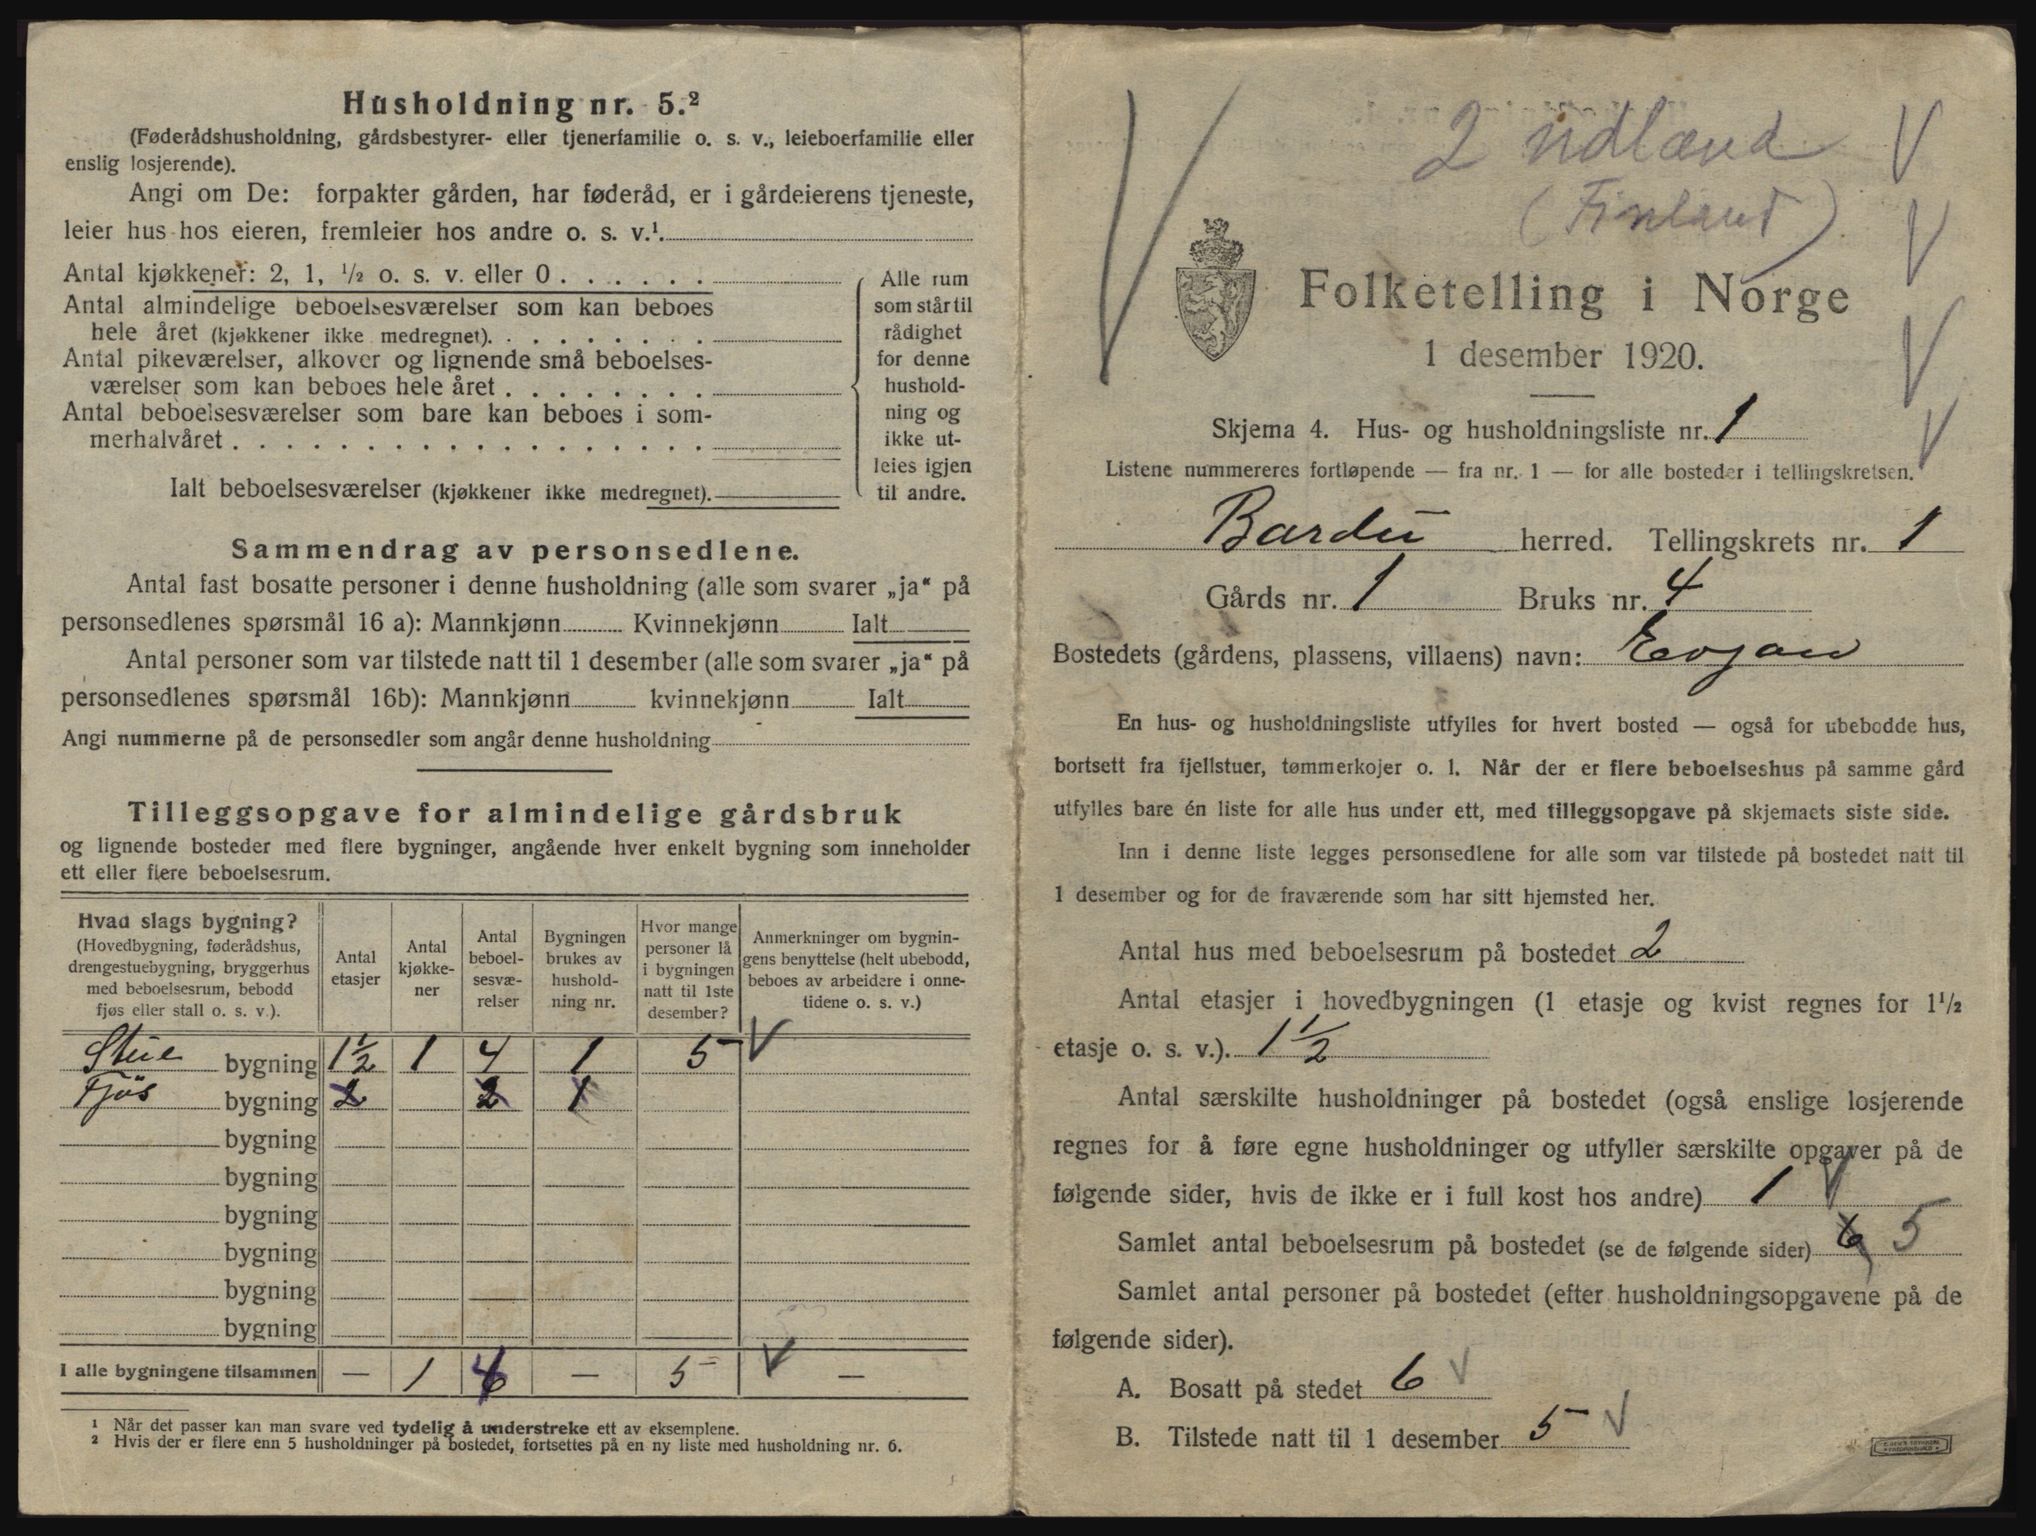 Husholdning nr. 5.²
(Føderådshusholdning, gårdsbestyrer- eller tjenerfamilie o. s. v., leieboerfamilie eller
enslig losjerende).
Angi om De: forpakter gården, har føderåd, er i gårdeierens tjeneste,
leier hus hos eieren, fremleier hos andre o. s. v.¹.
Antal kjøkkener: 2, 1, ½ o. s. v. eller 0 . . . . . .
Antal almindelige beboelsesværelser som kan beboes
hele året (kjøkkener ikke medregnet). . . . . . . . .
Antal pikeværelser, alkover og lignende små beboelses-
værelser som kan beboes hele året . . . . . . . .
Antal beboelsesværelser som bare kan beboes i som-
merhalvåret . . . . . . . . . . . . . . . . . .
Ialt beboelsesværelser (kjøkkener ikke medregnet).
Alle rum
som står til
rådighet
for denne
hushold-
ning og
ikke ut-
leies igjen
til andre.
Sammendrag av personsedlene.
Antal fast bosatte personer i denne husholdning (alle som svarer „ja“ på
personsedlenes spørsmål 16 a): Mannkjønn Kvinnekjønn Ialt
Antal personer som var tilstede natt til 1 desember (alle som svarer „ja“ på
personsedlenes spørsmål 16b): Mannkjønn kvinnekjønn Ialt
Angi nummerne på de personsedler som angår denne husholdning
Tilleggsopgave for almindelige gårdsbruk
og lignende bosteder med flere bygninger, angående hver enkelt bygning som inneholder
ett eller flere beboelsesrum.
Hvad slags bygning?
(Hovedbygning, føderådshus,
drengestuebygning, bryggerhus
med beboelsesrum, bebodd
fjøs eller stall o. s. v.).
Antal
etasjer
Antal
kjøkke-
ner
Antal
beboel-
sesvæ-
relser
Bygningen
brukes av
hushold-
ning nr.
Hvor mange
personer lå
i bygningen
natt til 1ste
desember?
Anmerkninger om bygnin-
gens benyttelse (helt ubebodd,
beboes av arbeidere i onne-
tidene o. s. v.)
Stue bygning 1½ 1 4 1 5 V
Fjøs bygning 2 2 1
bygning
bygning
bygning
bygning
bygning
bygning
I alle bygningene tilsammen — 1 — 5 V —
¹ Når det passer kan man svare ved tydelig å understreke ett av eksemplene.
² Hvis der er flere enn 5 husholdninger på bostedet, fortsettes på en ny liste med husholdning nr. 6.
2 udlænd
(Finland)
Folketelling i Norge
1 desember 1920.
Skjema 4. Hus- og husholdningsliste nr. 1
Listene nummereres fortløpende — fra nr. 1 — for alle bosteder i tellingskretsen.
Bardu herred. Tellingskrets nr. 1
Gårds nr. 1 Bruks nr. 4
Bostedets (gårdens, plassens, villaens) navn: Evjan
En hus- og husholdningsliste utfylles for hvert bosted — også for ubebodde hus,
bortsett fra fjellstuer, tømmerkojer o. l. Når der er flere beboelseshus på samme gård
utfylles bare én liste for alle hus under ett, med tilleggsopgave på skjemaets siste side.
Inn i denne liste legges personsedlene for alle som var tilstede på bostedet natt til
1 desember og for de fraværende som har sitt hjemsted her.
Antal hus med beboelsesrum på bostedet 2
Antal etasjer i hovedbygningen (1 etasje og kvist regnes for 1½
etasje o. s. v.). 1½
Antal særskilte husholdninger på bostedet (også enslige losjerende
regnes for å føre egne husholdninger og utfyller særskilte opgaver på de
følgende sider, hvis de ikke er i full kost hos andre) 1 V
Samlet antal beboelsesrum på bostedet (se de følgende sider) 6 5
Samlet antal personer på bostedet (efter husholdningsopgavene på de
følgende sider).
A. Bosatt på stedet 6 V
B. Tilstede natt til 1 desember 5 V